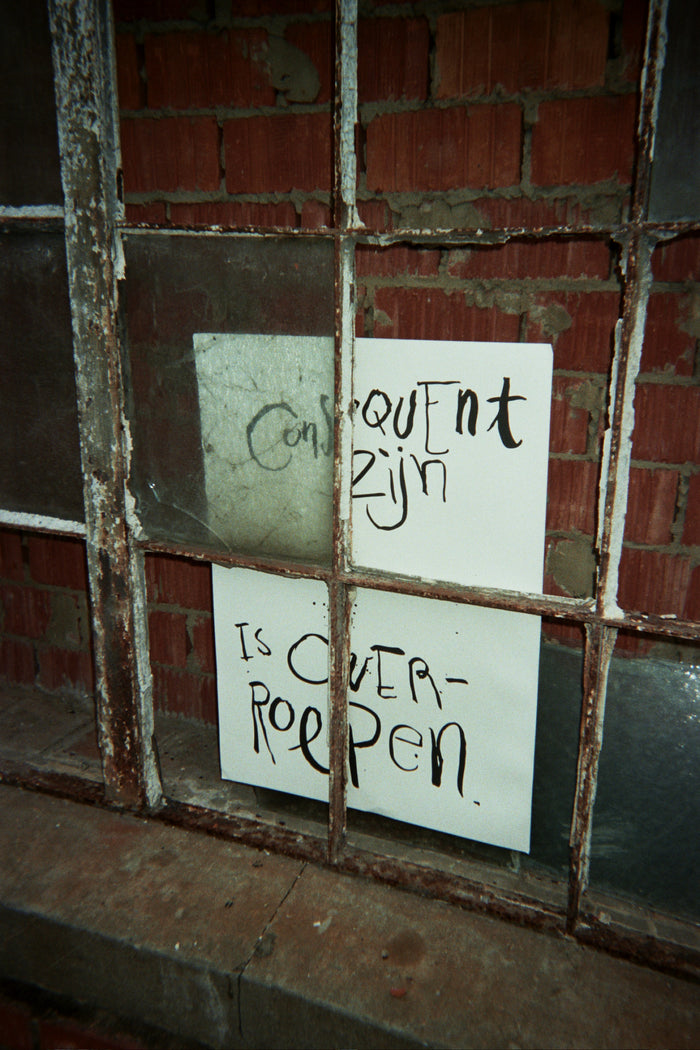 ConsEQUEnt
zijn
Is OVER-
Roepen.